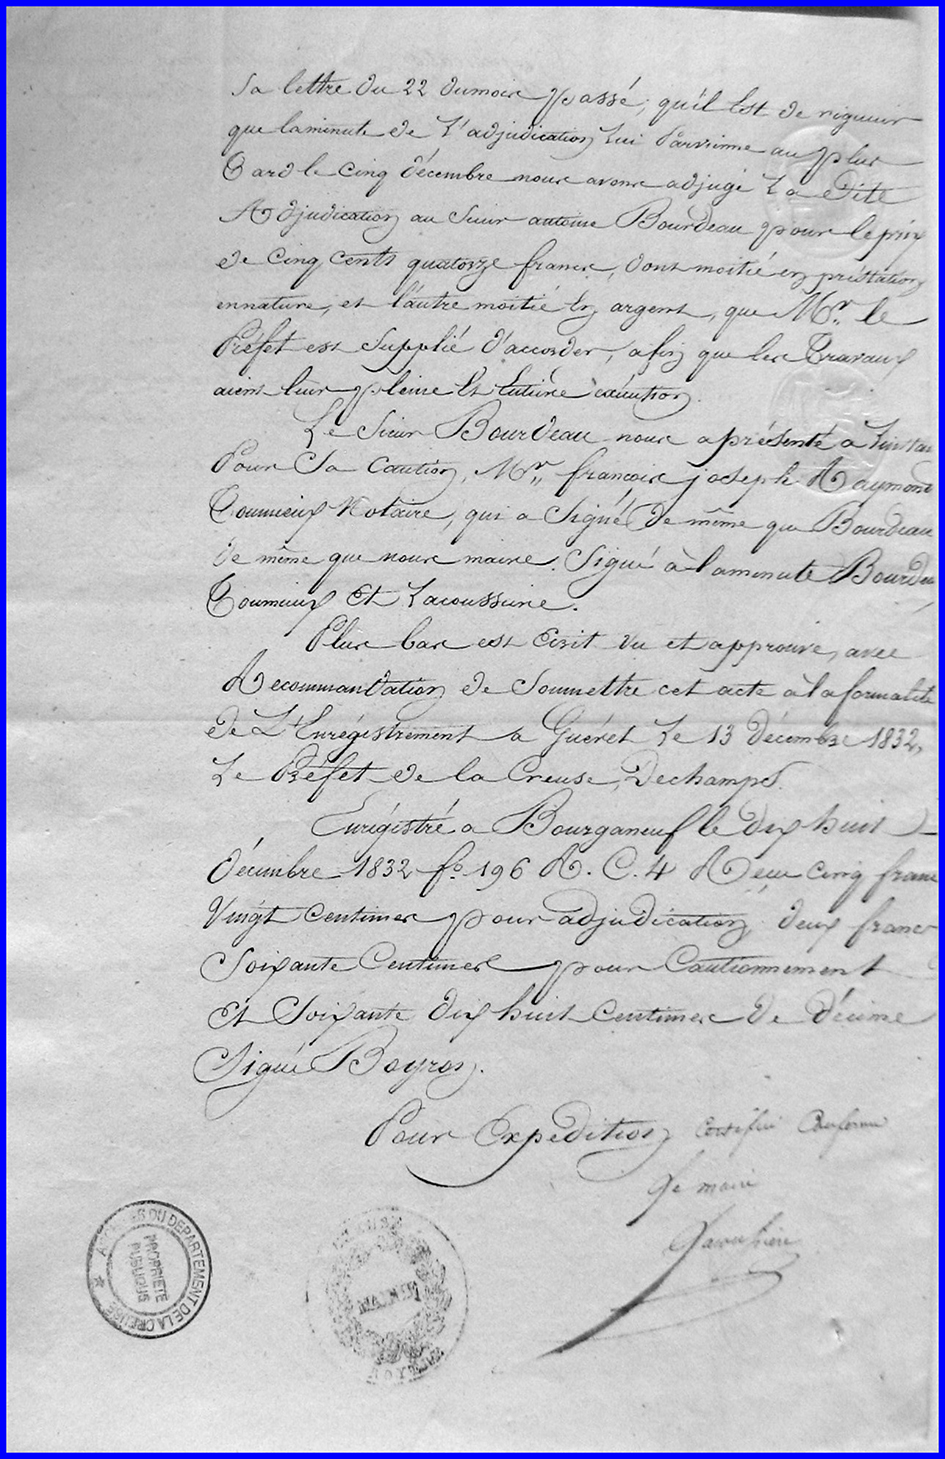 Sa lettre du 22 dumois passé, qu'il Est de rigueur
que laminute de L'adjudication Lui Parvienne au plus
Tard le cinq décembre nous avons adjugé La dite
Adjudication au Sieur antoine Bourdeau pour le prix
de cinq cents quatorze francs, dont moitié en préstation
ennature, et l'autre moitié En argent, que Mr. le
Préfet est Supplié d'accorder, afin que les Travaux
aient leur pleine Et Entière exécution.
Le Sieur Bourdeau nous a présenté a L'instan
Pour Sa Caution, Mr. françois joseph Raymond
Toumieux Notaire, qui a Signé De même que Bourdeau
de même que nous maire. Signé à laminute Bourdeau
Toumieux Et Lacoussiere.
Plus bas est Ecrit Vu et approuvé, avec
Recommandation de Soumettre cet acte a la formalité
de L'Enrégistrement a Guéret Le 13 Décembre 1832,
Le Préfet de la Creuse, Dechamps.
Enrégistré a Bourganeuf le dix huit
Décembre 1832 fo. 196 R. C. 4 Reçu cinq francs
Vingt Centimes pour adjudication, deux francs
Soixante Centimes pour Cautionnement
Et Soixante dix huit Centimes de Décime
Signé Boyron.
Pour Expédition Certifiée Conforme
Le maire
Lacoussiere
ARCHIVES DU DEPARTEMENT DE LA CREUSE
PROPRIETE
PUBLIQUE
CREUSE
MAIRIE